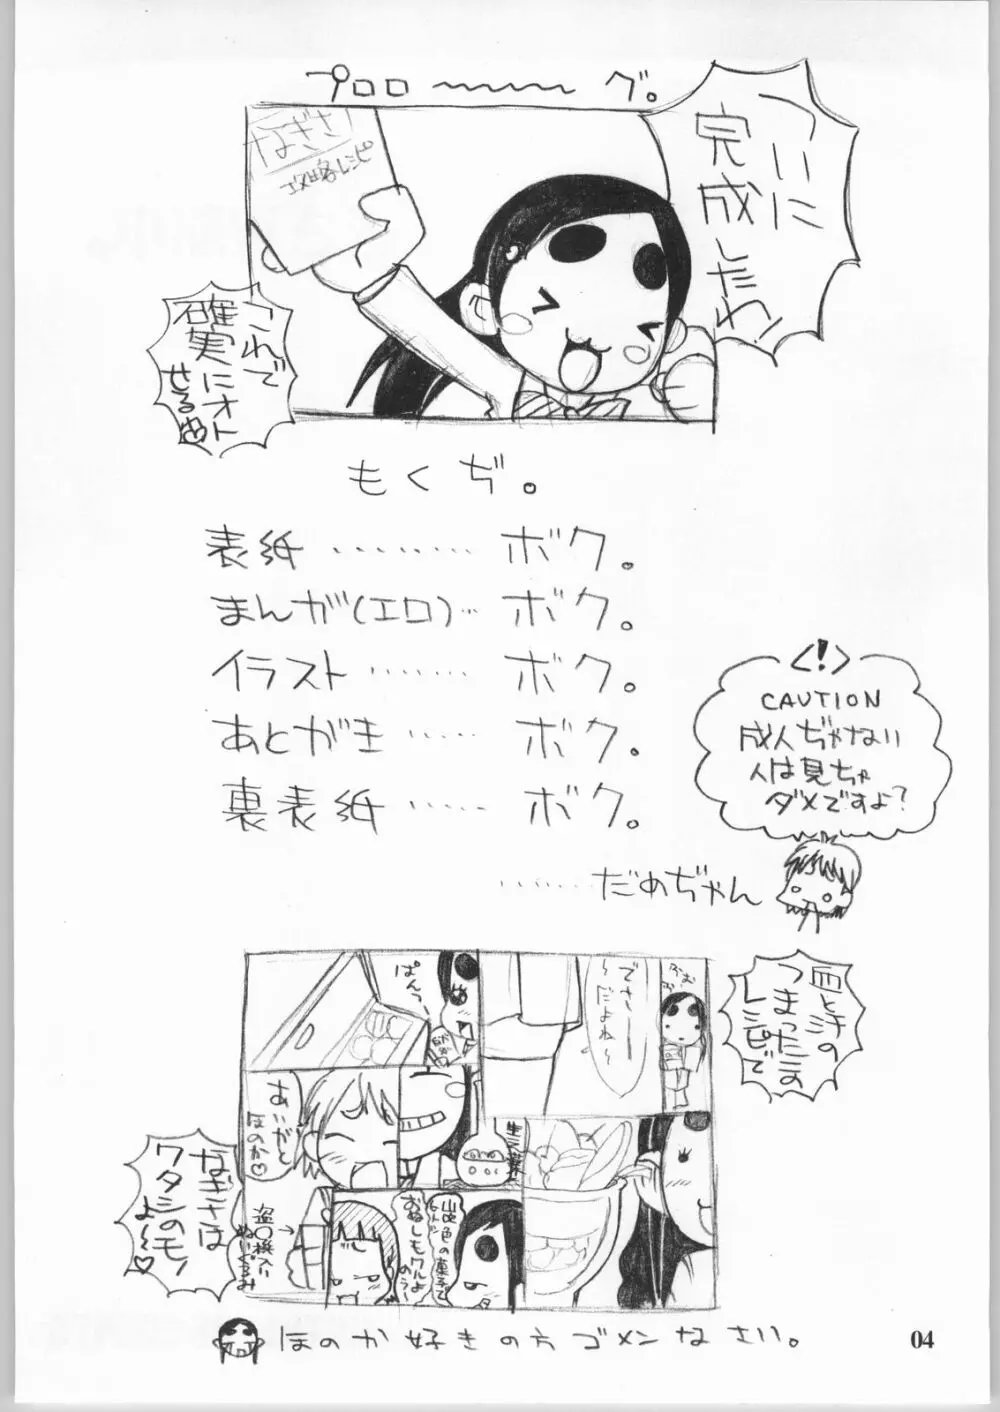 プロロ～～～グ。
ついに
完成したわ!
なぎさ!
攻略レシピ
これで
確実にオト
せるわ
もくぢ。
表紙………ボク。
まんが(エロ)…ボク。
イラスト………ボク。
あとがき……ボク。
裏表紙……ボク。
………だめぢゃん
<!>
CAUTION
成人ぢゃない
人は見ちゃ
ダメですよ?
血と汗の
つまったこの
レシピで
ぱんつ…
でさー
～だよね～
ありがと
ほのか♡
生
山吹色の菓子で
おぬしもワルよ
のう…
盗〇機入り
ぬいぐるみ
なぎさは
ワタシのモノ
よ～♡
ほのか好きの方ゴメンなさい。
04